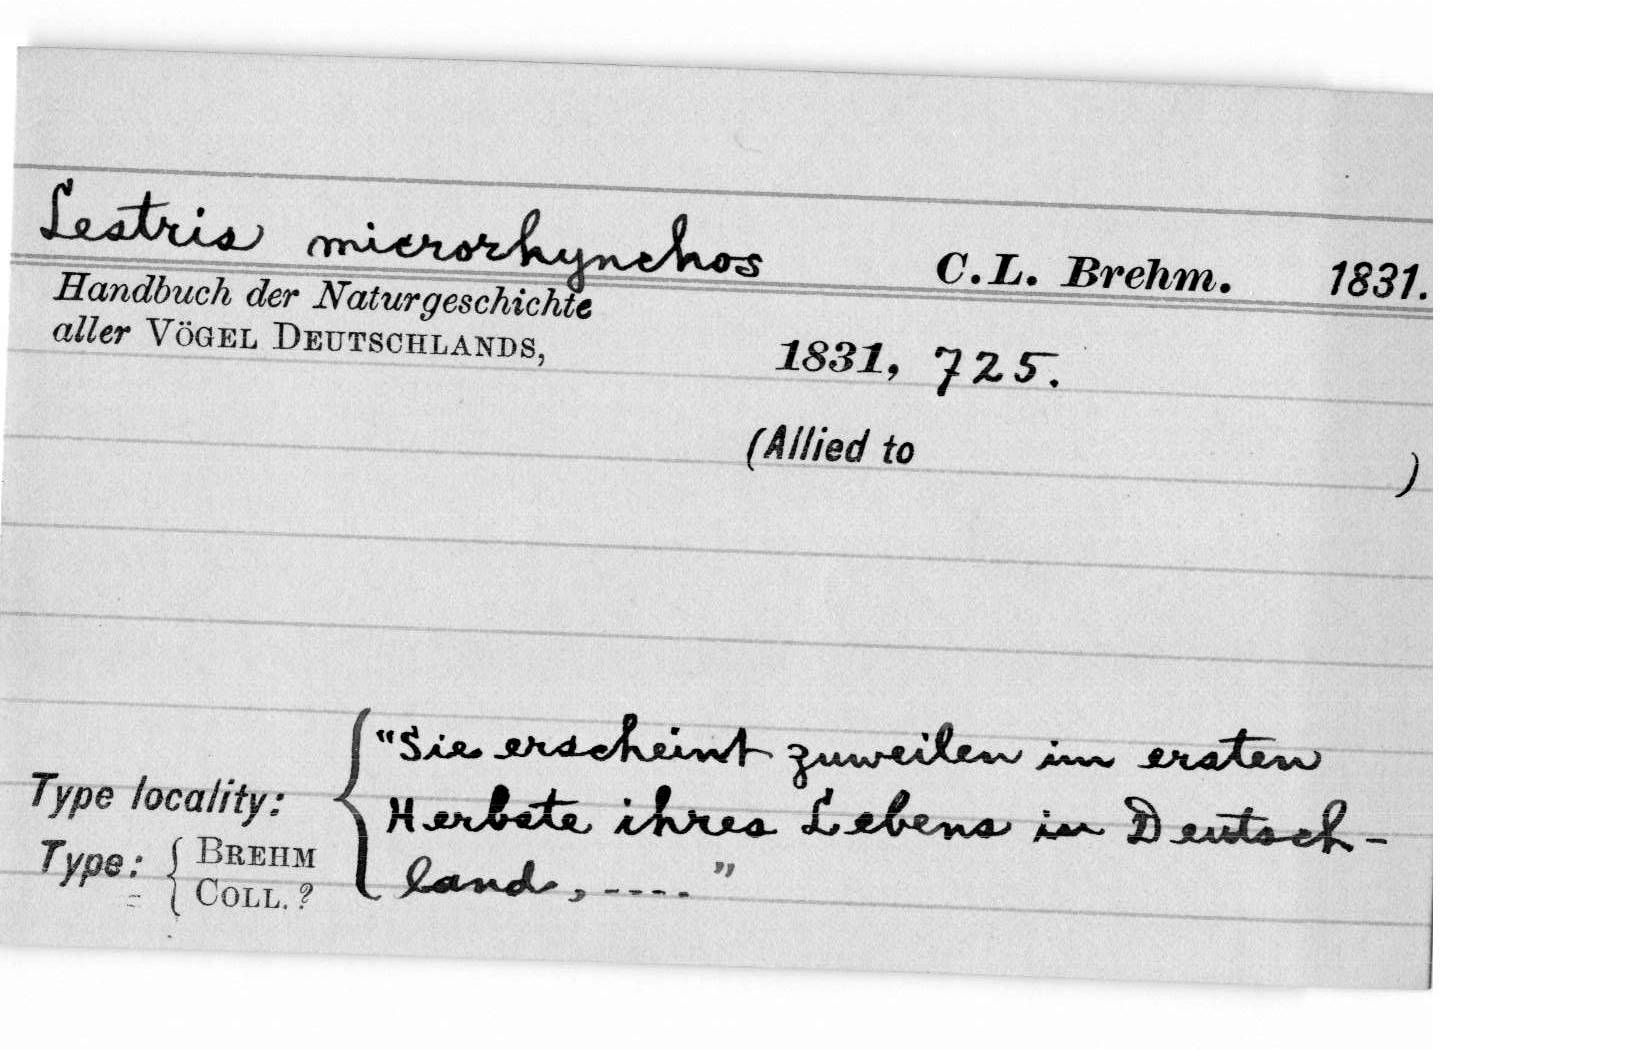 Lestris microrhynchos C.L. Brehm. 1831.
Handbuch der Naturgeschichte
aller VÖGEL DEUTSCHLANDS,
1831, 725.
(Allied to )
"Sie erscheint zuweilen im ersten
Type locality: Herbste ihres Lebens in Deutsch-
Type: { BREHM
COLL. ?
land, ...."